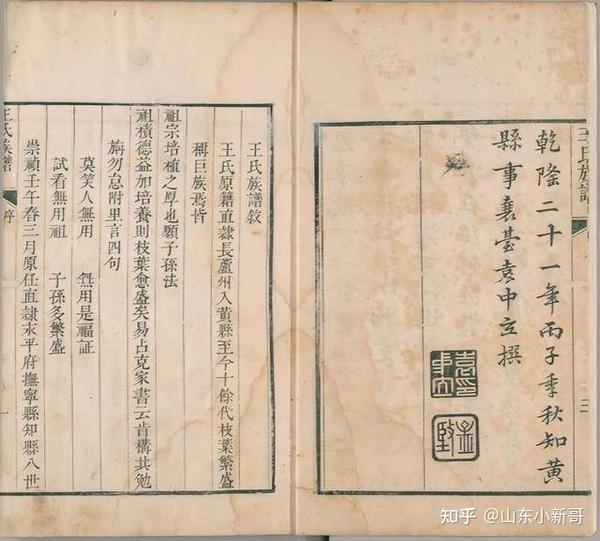 王氏族譜
乾隆二十一年丙子季秋知黃
縣事襄臺袁中立撰
王氏族譜敘
王氏原籍直隸長蘆州入黃縣至今十餘代枝葉繁盛
稱巨族焉皆
祖宗培植之厚也願子孫法
祖積德益加培養則枝葉愈盛矣易占克家書云肯構其勉
旃勿怠附里言四句
莫笑人無用 無用是福証
試看無用祖 子孫多繁盛
崇禎壬午春三月原任直隸永平府撫寧縣知縣八世
王氏族譜 序 一
知乎 @山东小新哥